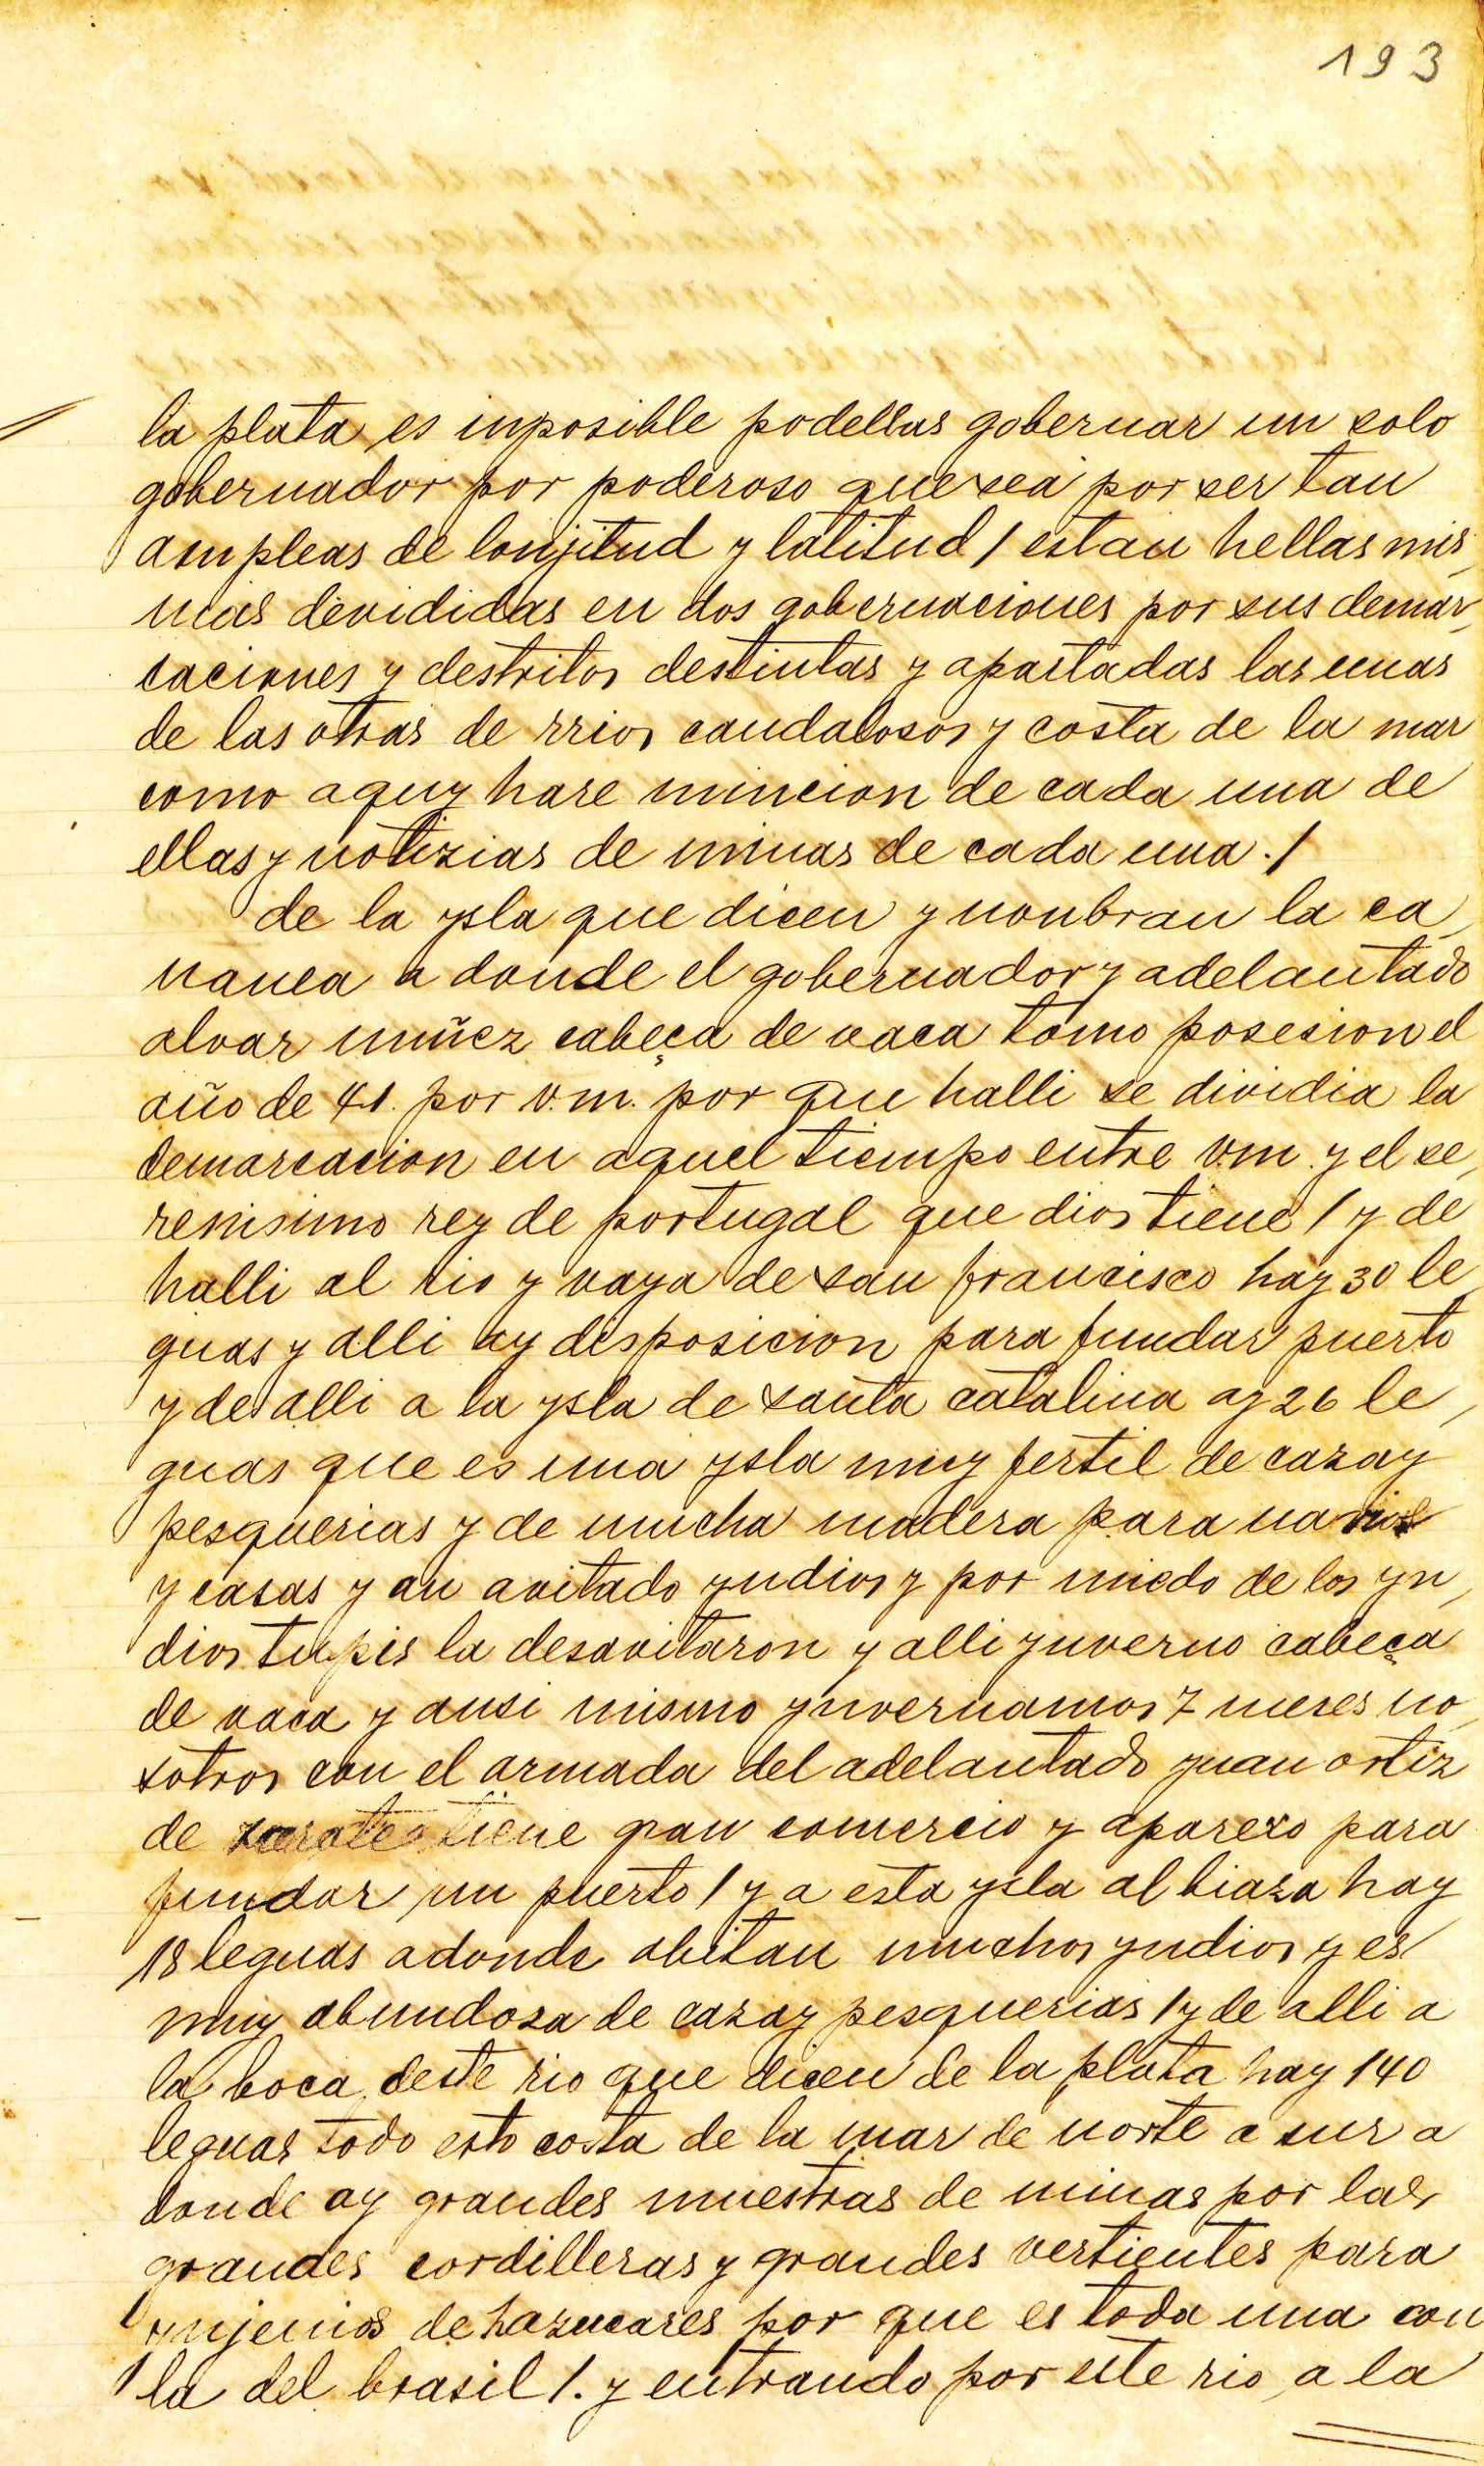 193
la plata es inposible podellas gobernar un solo
gobernador por poderoso que sea por ser tan
ampleas de lonjitud y latitud / estan hellas mis,
mas devididas en dos gobernaciones por sus demar,
caciones y destritos destintas y apartadas las unas
de las otras de rrios caudalosos y costa de la mar
como aquy hare mincion de cada una de
ellas y notizias de minas de cada una ./
de la ysla que dicen y nonbran la ca,
nanea a donde el gobernador y adelantado
alvar nuñez cabeça de vaca tomo posesion el
año de 41. por v.m. por que halli se dividia la
demarcacion en aquel tiempo entre v.m. y el se,
renisimo rey de portugal que dios tiene / y de
halli al rio y vaya de san francisco hay 30 le,
guas y alli ay disposicion para fundar puerto
y de alli a la ysla de santa catalina ay 26 le,
guas que es una ysla muy fertil de caza y
pesquerias y de mucha madera para navios
y casas y an avitado yndios y por miedo de los yn,
dios tupis la desavitaron y alli ynverno cabeça
de vaca y ansi mismo ynvernamos 7 meses no,
sotros con el armada del adelantado yuan ortiz
de zarate tiene gran comercio y aparexo para
fundar un puerto / y a esta ysla al biaza hay
18 leguas adonde abitan muchos yndios y es
muy abundosa de caza y pesquerias / y de alli a
la boca deste rio que dicen de la plata hay 140
leguas todo esto costa de la mar de norte a sur a
donde ay grandes muestras de minas por las
grandes cordilleras y grandes vertientes para
ynjenios de hazucares por que es toda una con
la del brasil /. y entrando por este rio a la